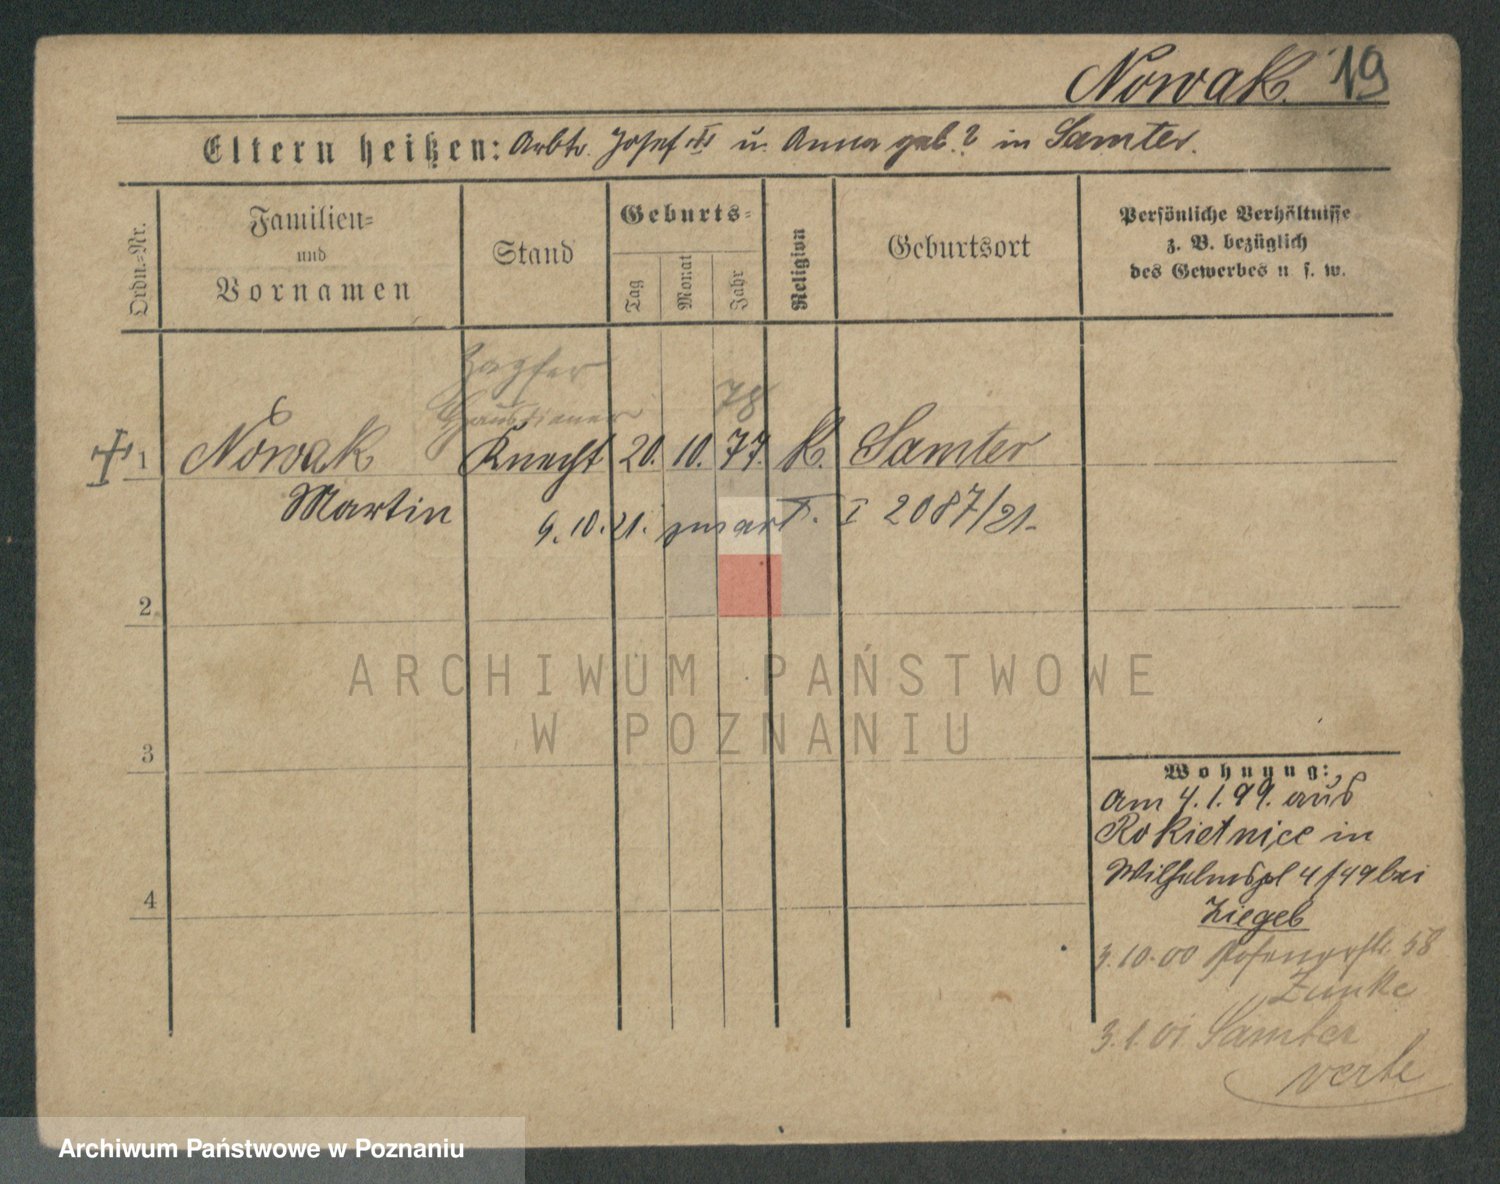 Nowak. 19
Eltern heißen: Arbtr. Josef u. Anna geb. ? in Samter.
Ordn.-Nr.
Familien-
und
Vornamen
Stand
Geburts-
Tag
Monat
Jahr
Religion
Geburtsort
Persönliche Verhältnisse
z. B. bezüglich
des Gewerbes u s. w.
78
1 Nowak Knecht 20. 10. 77. k. Samter
Martin
9. 10. 21. I 2087/21.
2
3
4
Wohnung:
am 4.1.99. aus
Rokietnice in
Wilhelmspl 4/49 bei
3.10.00 Posenerstr. 58
3.1.01 Samter
verte
ARCHIWUM PAŃSTWOWE
W POZNANIU
Archiwum Państwowe w Poznaniu